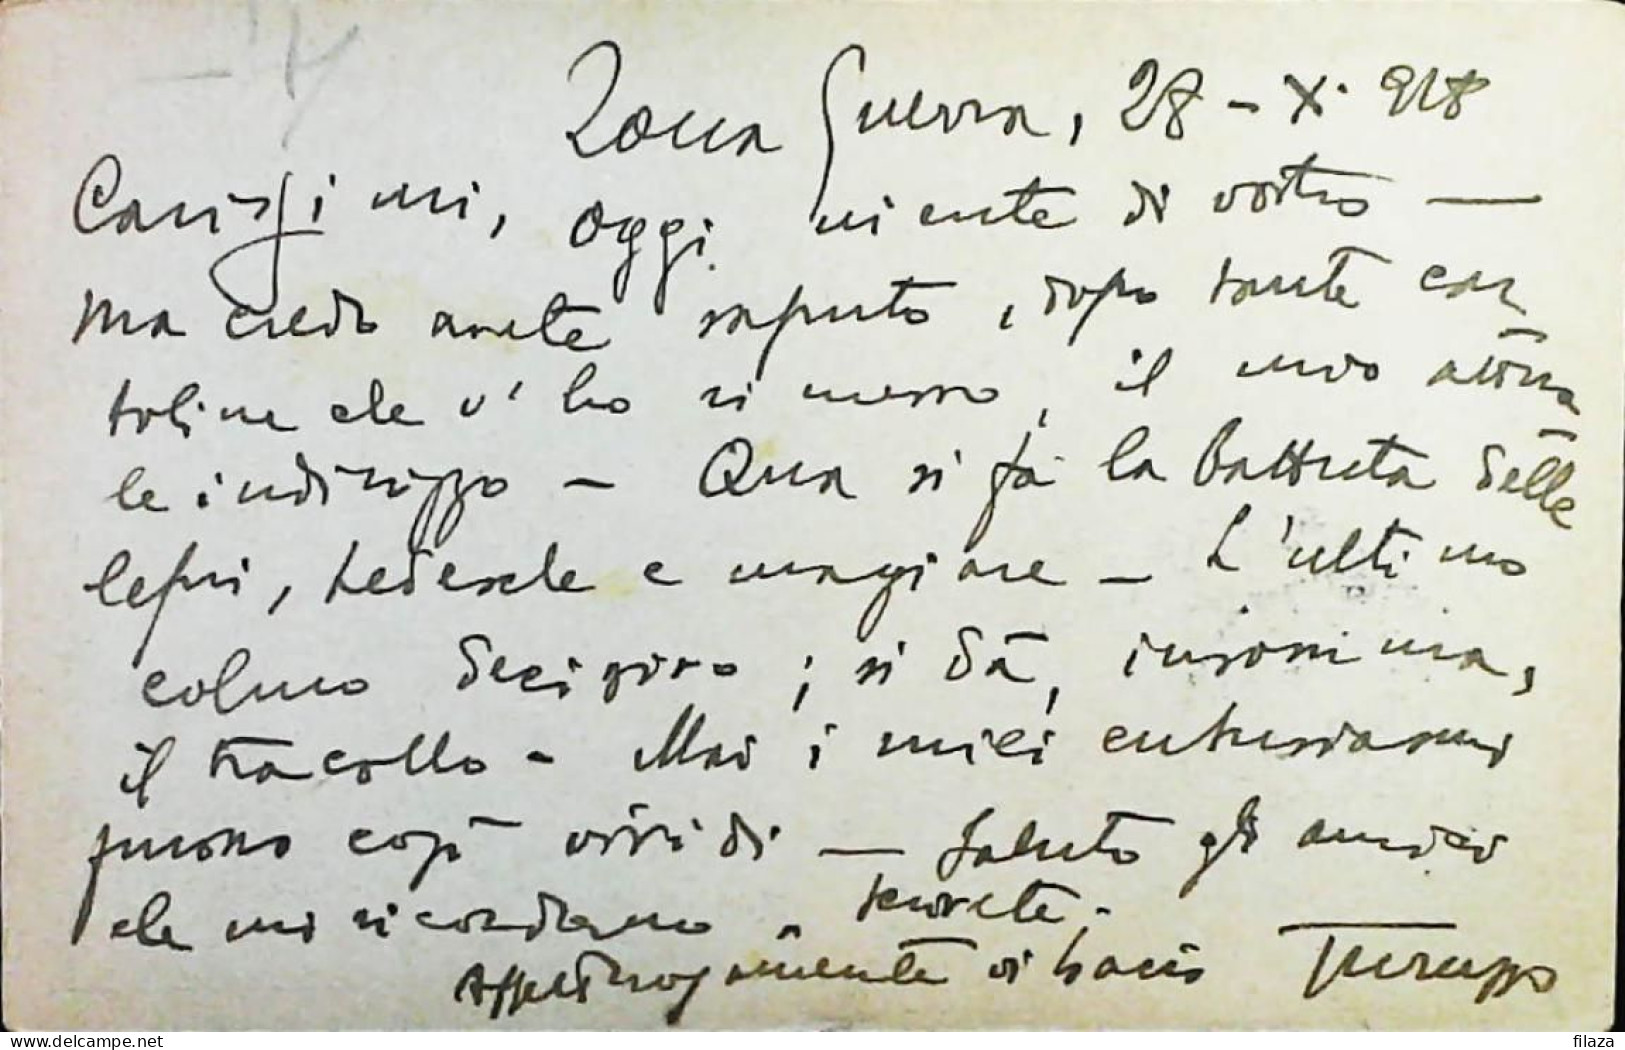 Zona Guerra, 28 - X. 918
Carissimi, oggi niente di vostro —
Ma credo avete saputo, dopo tante car
toline che v'ho rimesso, il mio attua
le indirizzo - Qua si fà la battuta delle
lepri, tedesche e magiare - L'ultimo
colmo decisivo; si dà, insomma,
il tracollo - Mai i miei entusiasmi
furono così vividi — Saluto gli amici
che mi ricordano.
Affettuosamente vi bacio
www.delcampe.net
filaza